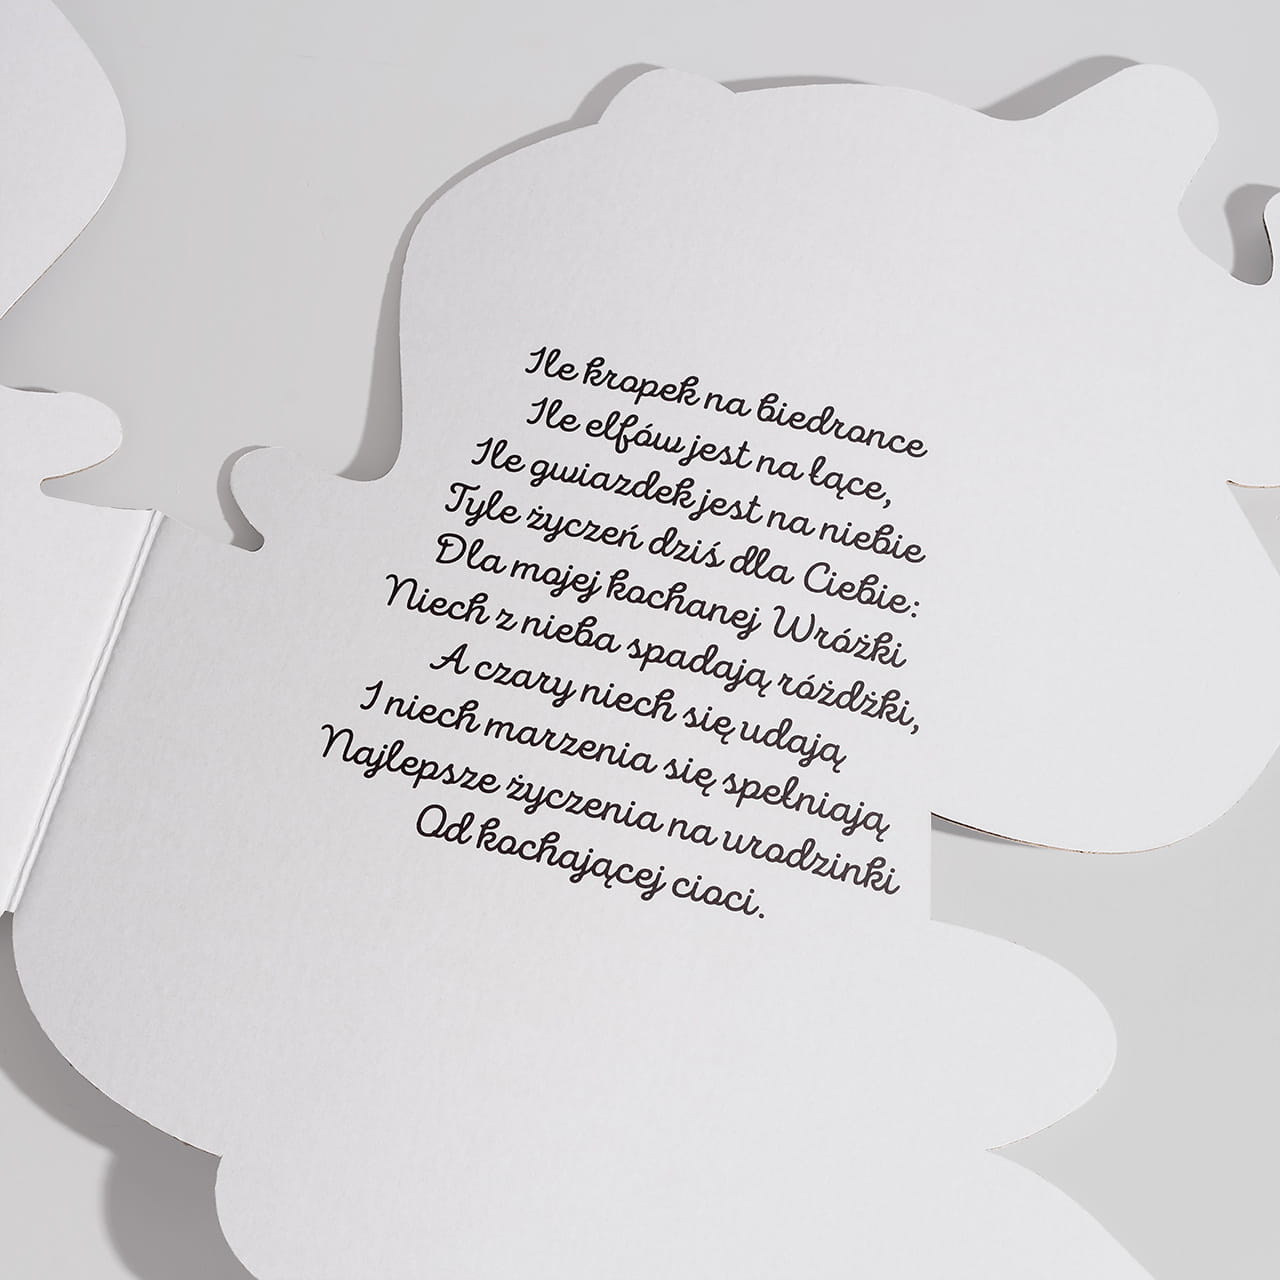 Ile kropek na biedronce
Ile elfów jest na łące,
Ile gwiazdek jest na niebie
Tyle życzeń dziś dla Ciebie:
Dla mojej kochanej Wróżki
Niech z nieba spadają różdżki,
A czary niech się udają
I niech marzenia się spełniają
Najlepsze życzenia na urodzinki
Od kochającej cioci.